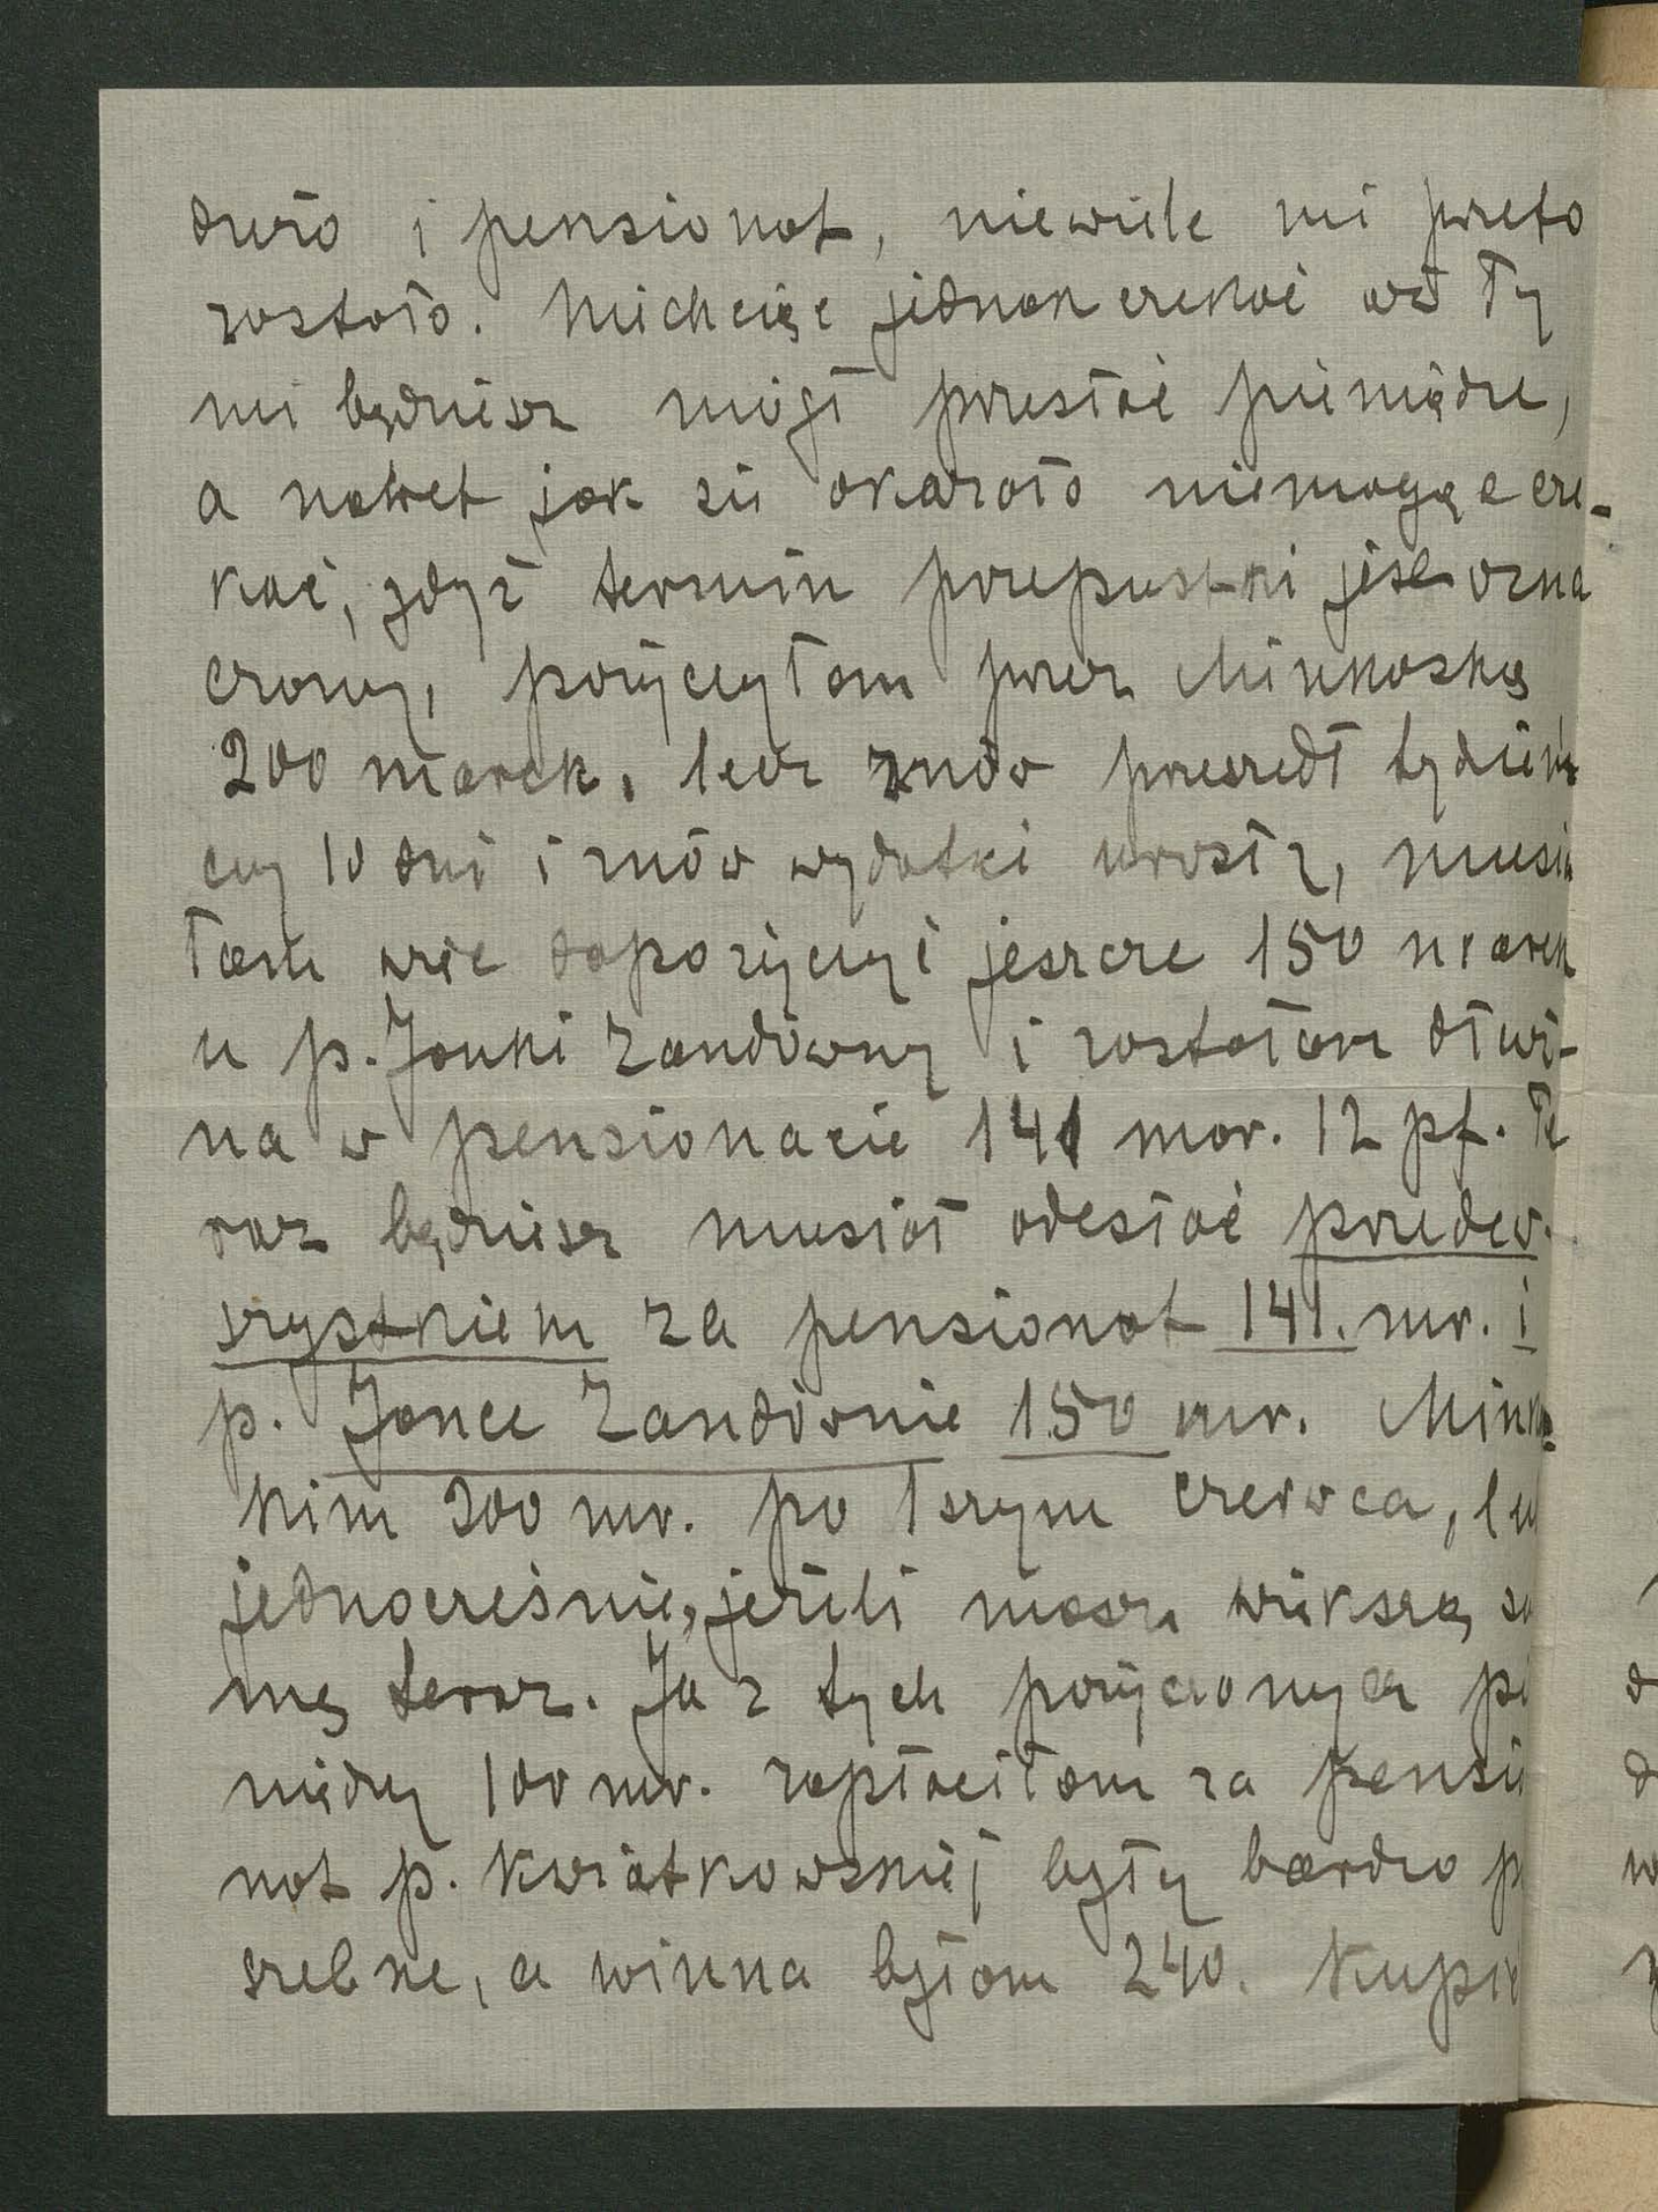 dużo i pensionat, niewiele mi przeto
zostało. Niechcąc jednak czekać aż Ty
mi będziesz mógł przesłać pieniądze,
a nawet jak się okazało niemogąc cze-
kać, gdyż termin przepustki jest ozna
czony, pożyczyłam przez Minkoską
200 marek, lecz znów przeszedł tydzień
czy 10 dni i znów wydatki urosły, musia
łam więc dopożyczyć jeszcze 150 marek
u p. Janki Zandówny i zostałam dłuż-
na w pensionacie 141 mar. 12 pf. Te
raz będziesz musiał odesłać przedew-
szystkiem za pensionat 141. mr. i
p. Jance Zandównie 150 mr. Minko-
kim 200 mr. po 1szym czerwca, lub
jednocześnie, jeżeli masz większą su
mę teraz. Ja z tych pożyczonych pi
niędzy 100 mr. zapłaciłam za pensio
nat p. Kwiatkowskiej były bardzo p
szebne, a winna byłam 240. Kupi